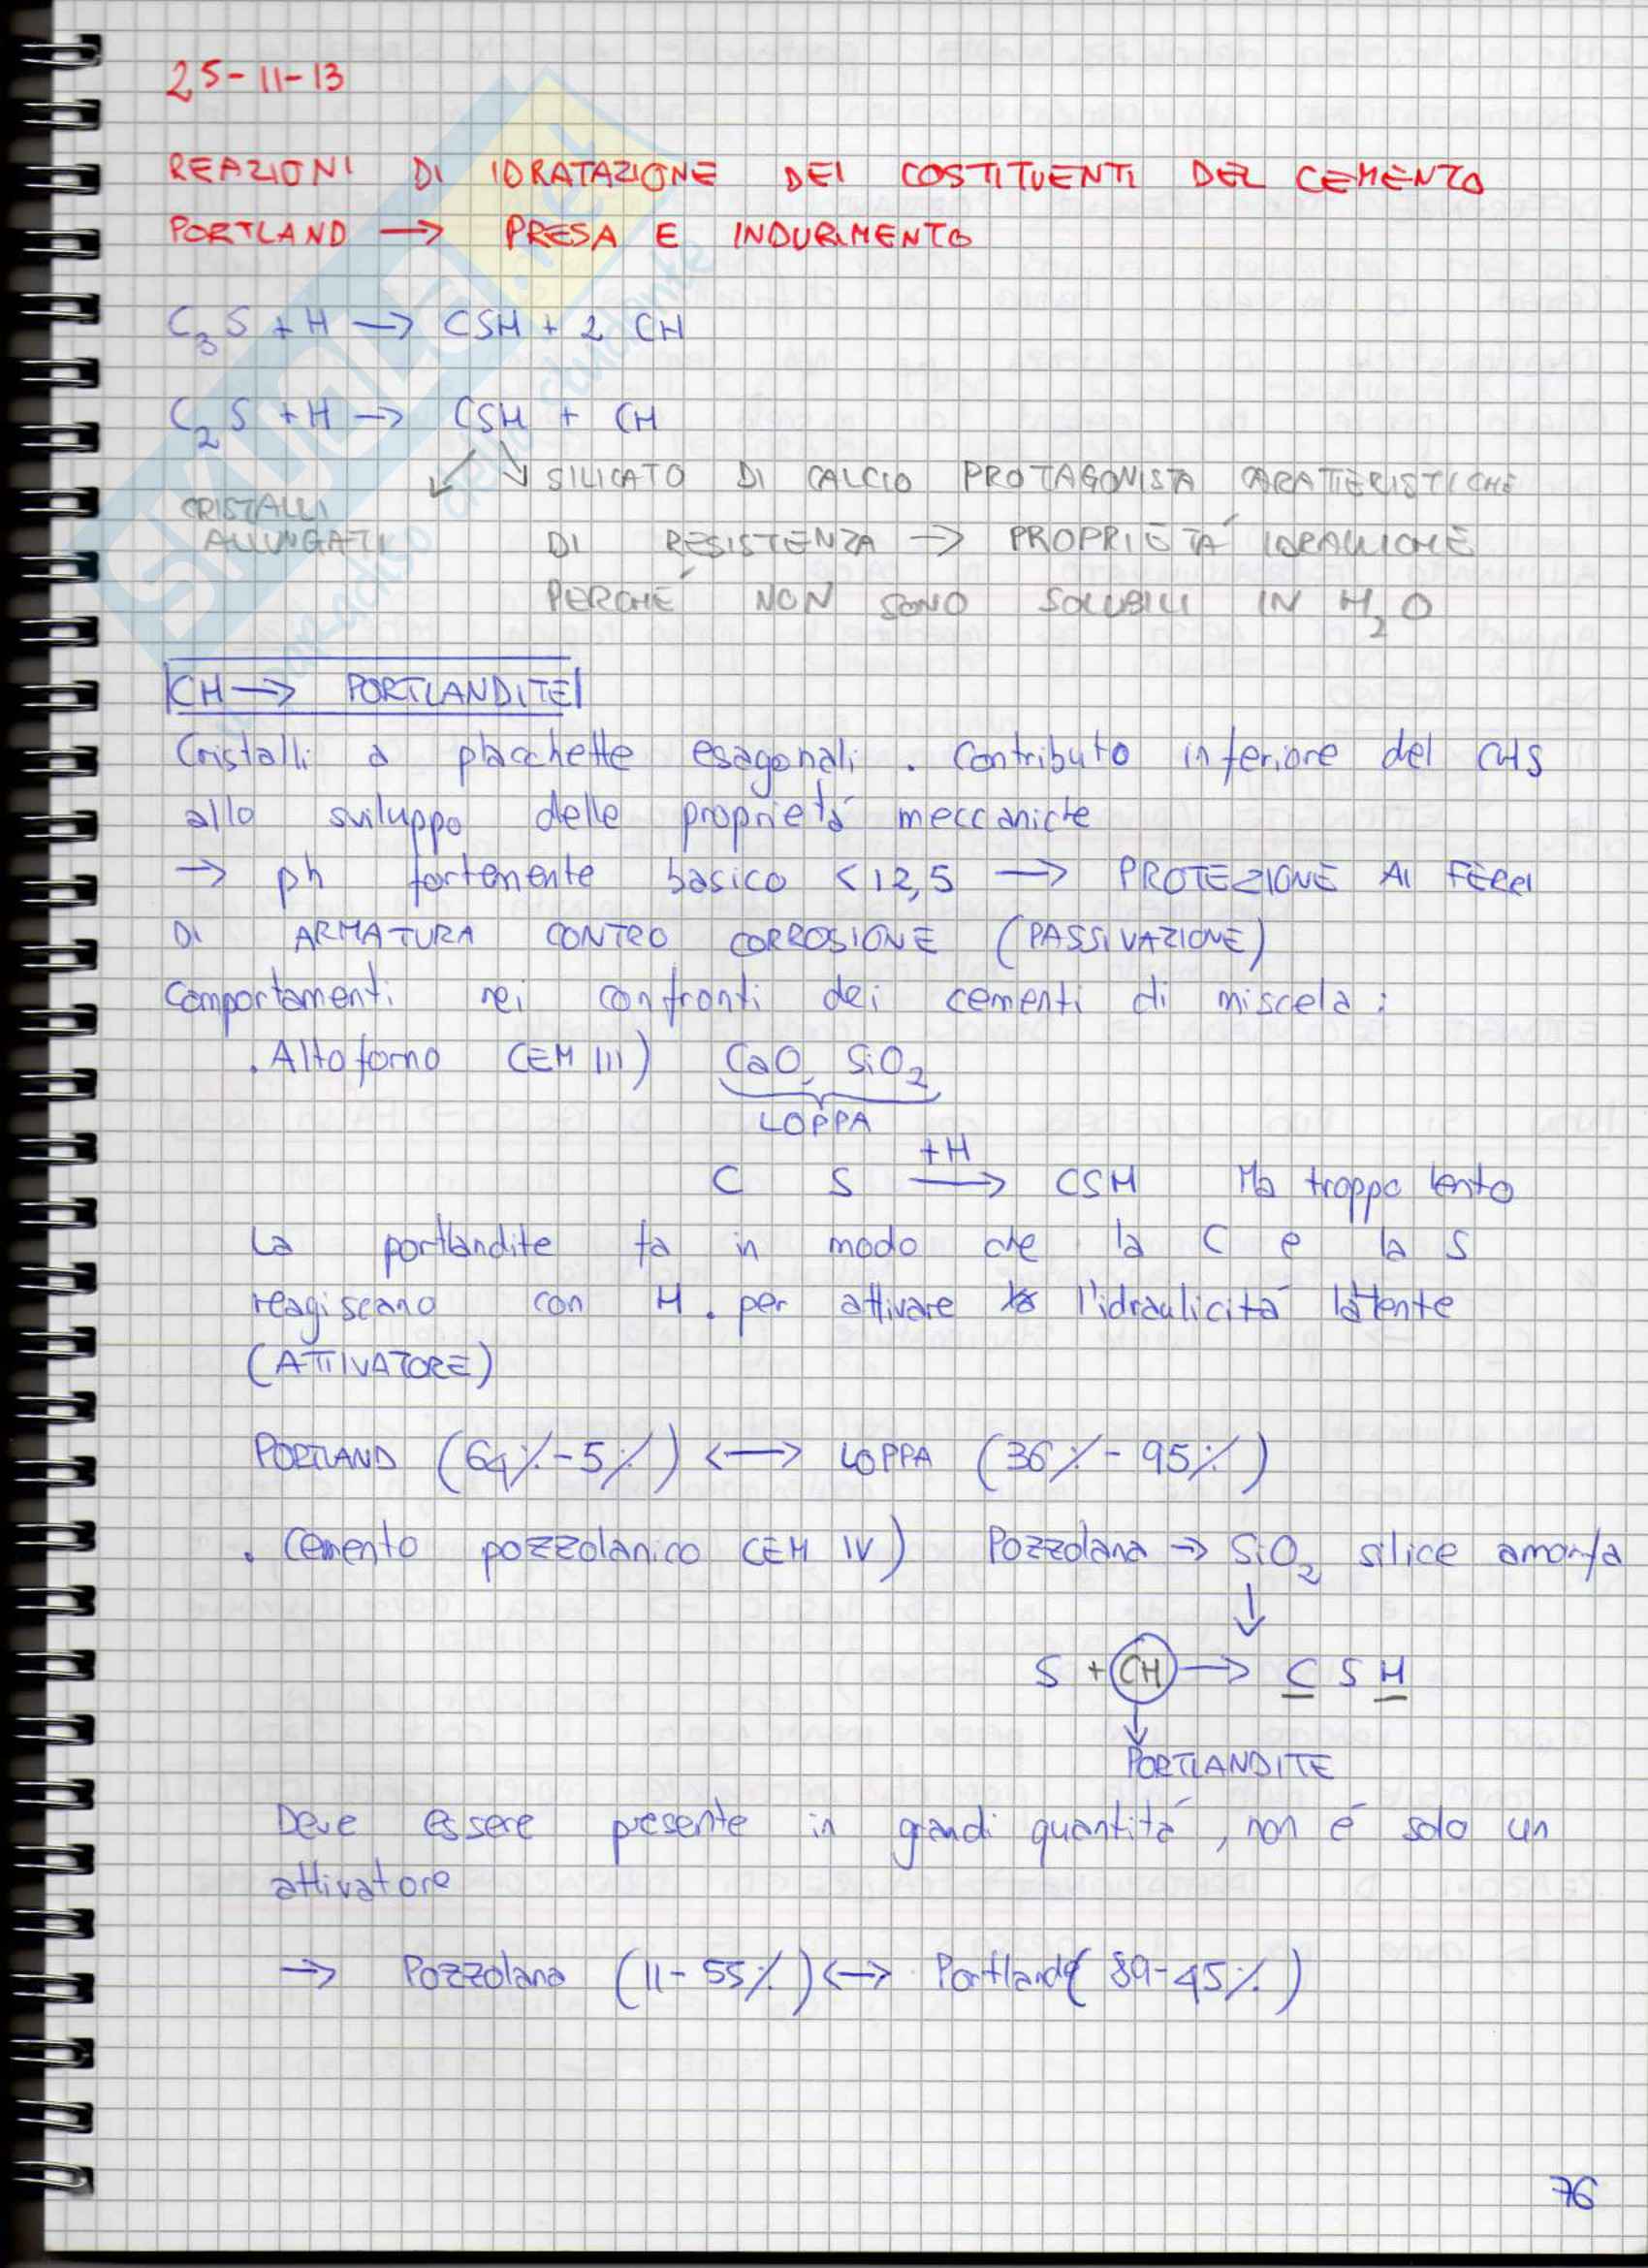 25-11-13
REAZIONI DI IDRATAZIONE DEI COSTITUENTI DEL CEMENTO
PORTLAND → PRESA E INDURIMENTO
C₃S + H → CSH + 2 CH
C₂S + H → CSH + CH
SILICATO DI CALCIO PROTAGONISTA CARATTERISTICHE
CRISTALLI
ALLUNGATI
DI RESISTENZA → PROPRIETÁ IDRAULICHE
PERCHÉ NON SONO SOLUBILI IN H₂O
CH → PORTLANDITE
Cristalli a placchette esagonali. Contributo inferiore del CHS
allo sviluppo delle proprietá meccaniche
→ ph fortemente basico < 12,5 → PROTEZIONE AI FERRI
DI ARMATURA CONTRO CORROSIONE (PASSIVAZIONE)
Comportamenti nei confronti dei cementi di miscela:
. Altoforno CEM III) CaO, SiO₂
LOPPA
+H
C S → CSH Ma troppo lento
La portlandite fa in modo che la C e la S
reagiscano con H. per attivare l'idraulicitá latente
(ATTIVATORE)
PORTLAND (64%-5%) <-> LOPPA (36%-95%)
. Cemento pozzolanico CEM IV) Pozzolana → SiO₂ silice amorfa
↓
S + CH → CSH
↓
PORTLANDITE
Deve essere presente in grandi quantitá, non é solo un
attivatore
→ Pozzolana (11-55%) <-> Portland (89-45%)
76
SKUOLA.net
il paradiso dello studente